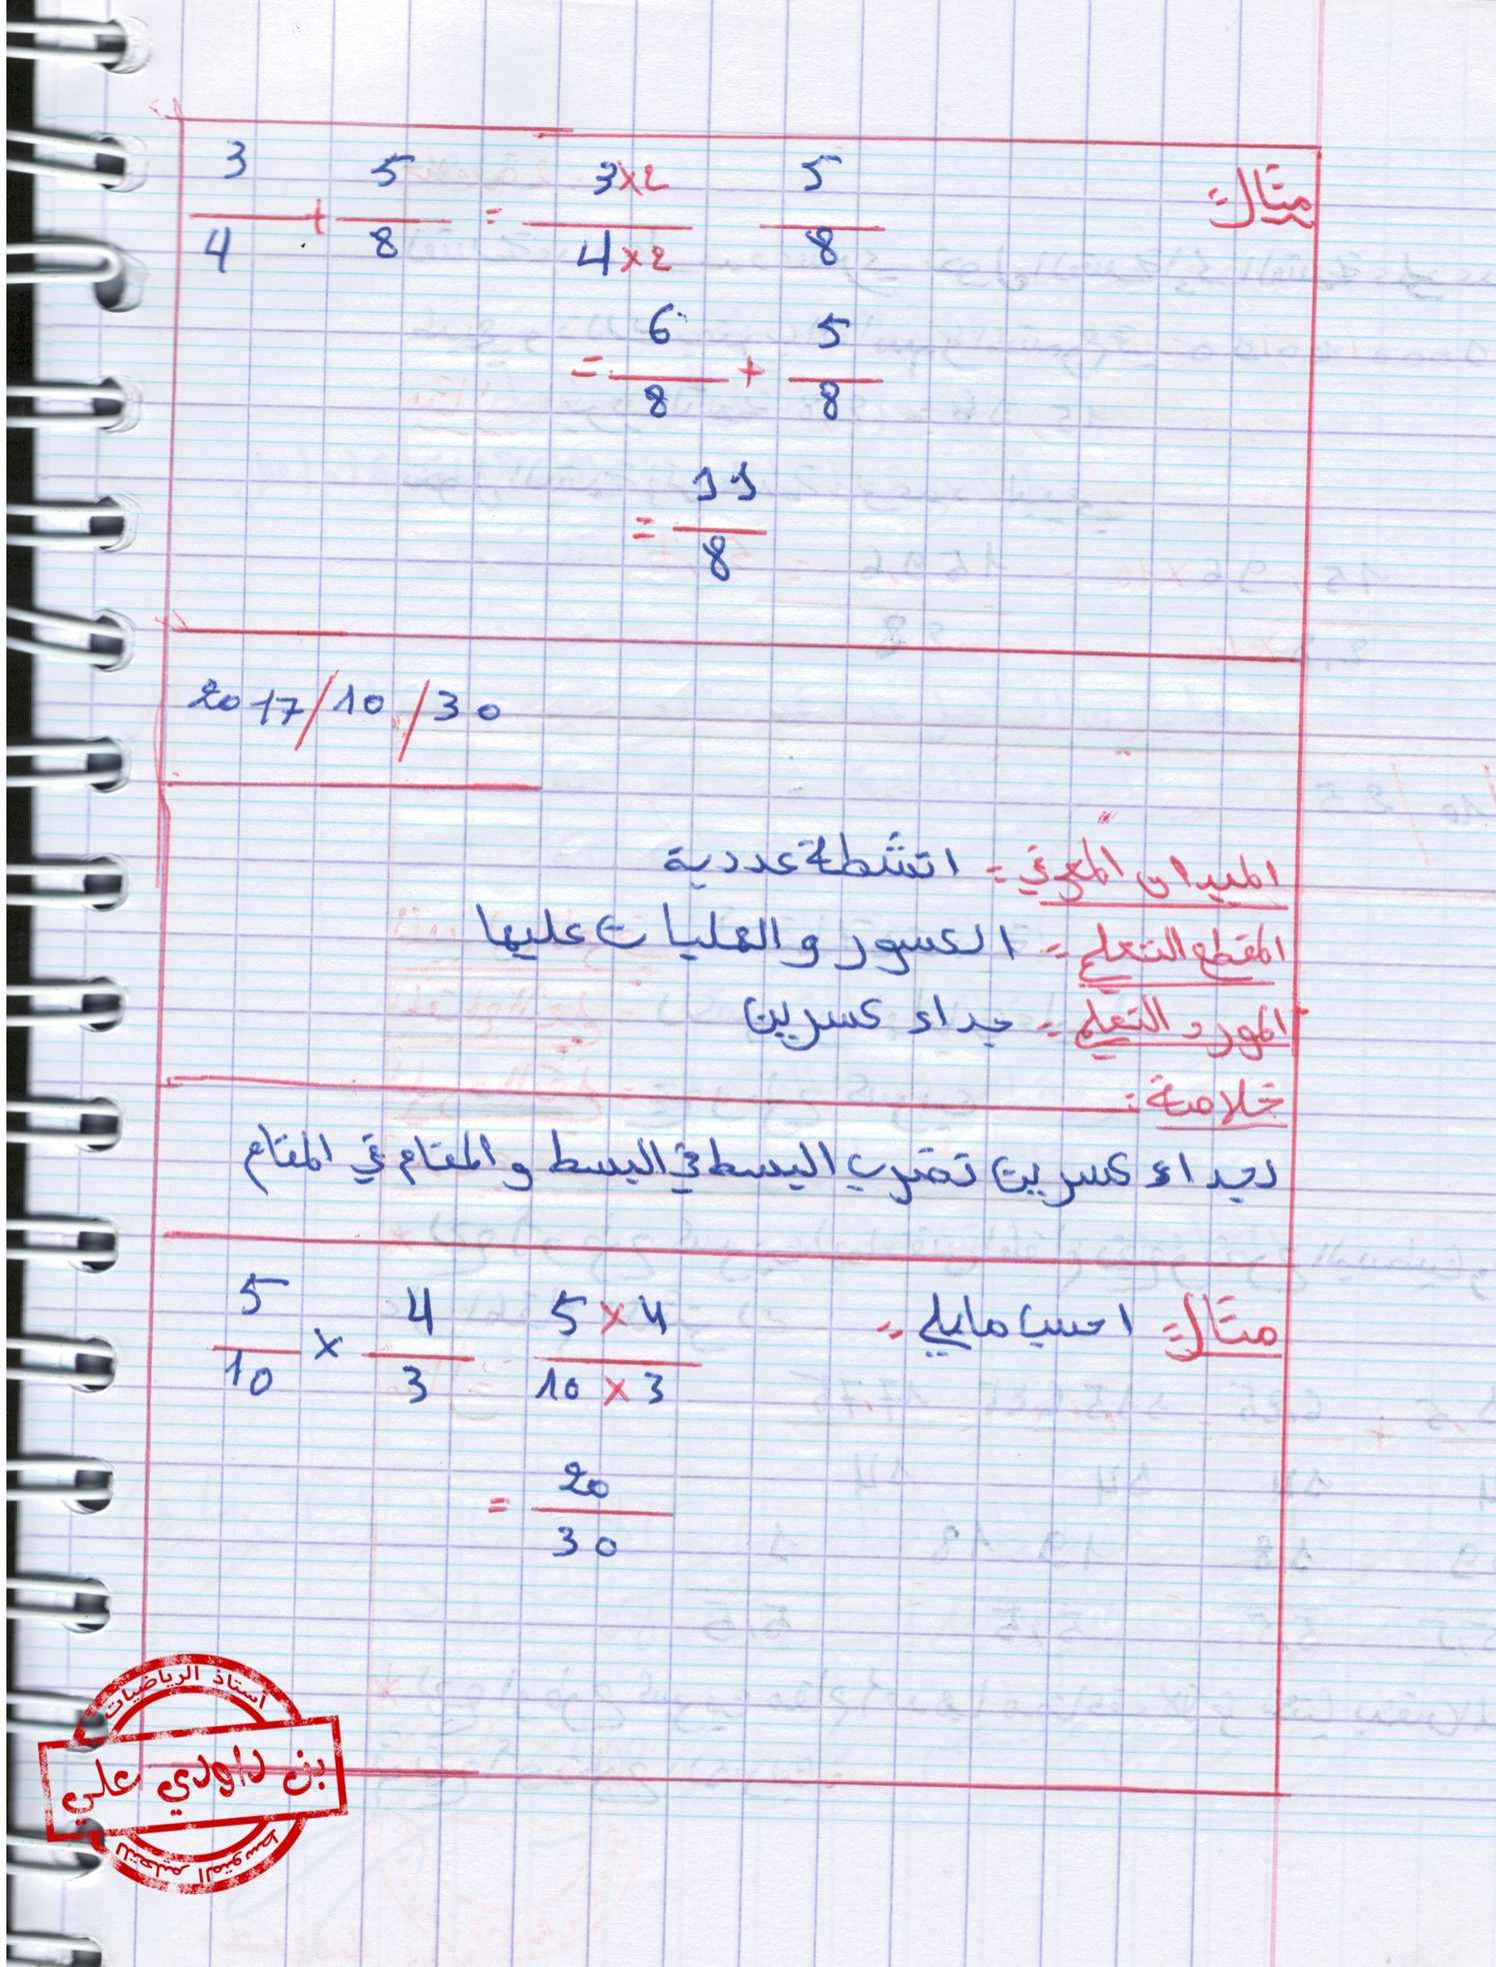 مثال:
3/4 + 5/8 = 3×2/4×2 5/8
= 6/8 + 5/8
= 11/8
2017/10/30
الميدان المعرفي: انشطة عددية
المقطع التعلمي: الكسور والعمليات عليها
المورد التعلمي: جداء كسرين
خلاصة:
لجداء كسرين نضرب البسط في البسط و المقام في المقام
مثال: احسب مايلي:
5/10 × 4/3 5×4/10×3
= 20/30
أستاذ الرياضيات
بن داودي علي
للتعليم المتوسط